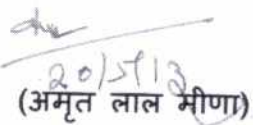 20/5/13
(अमृत लाल मीणा)